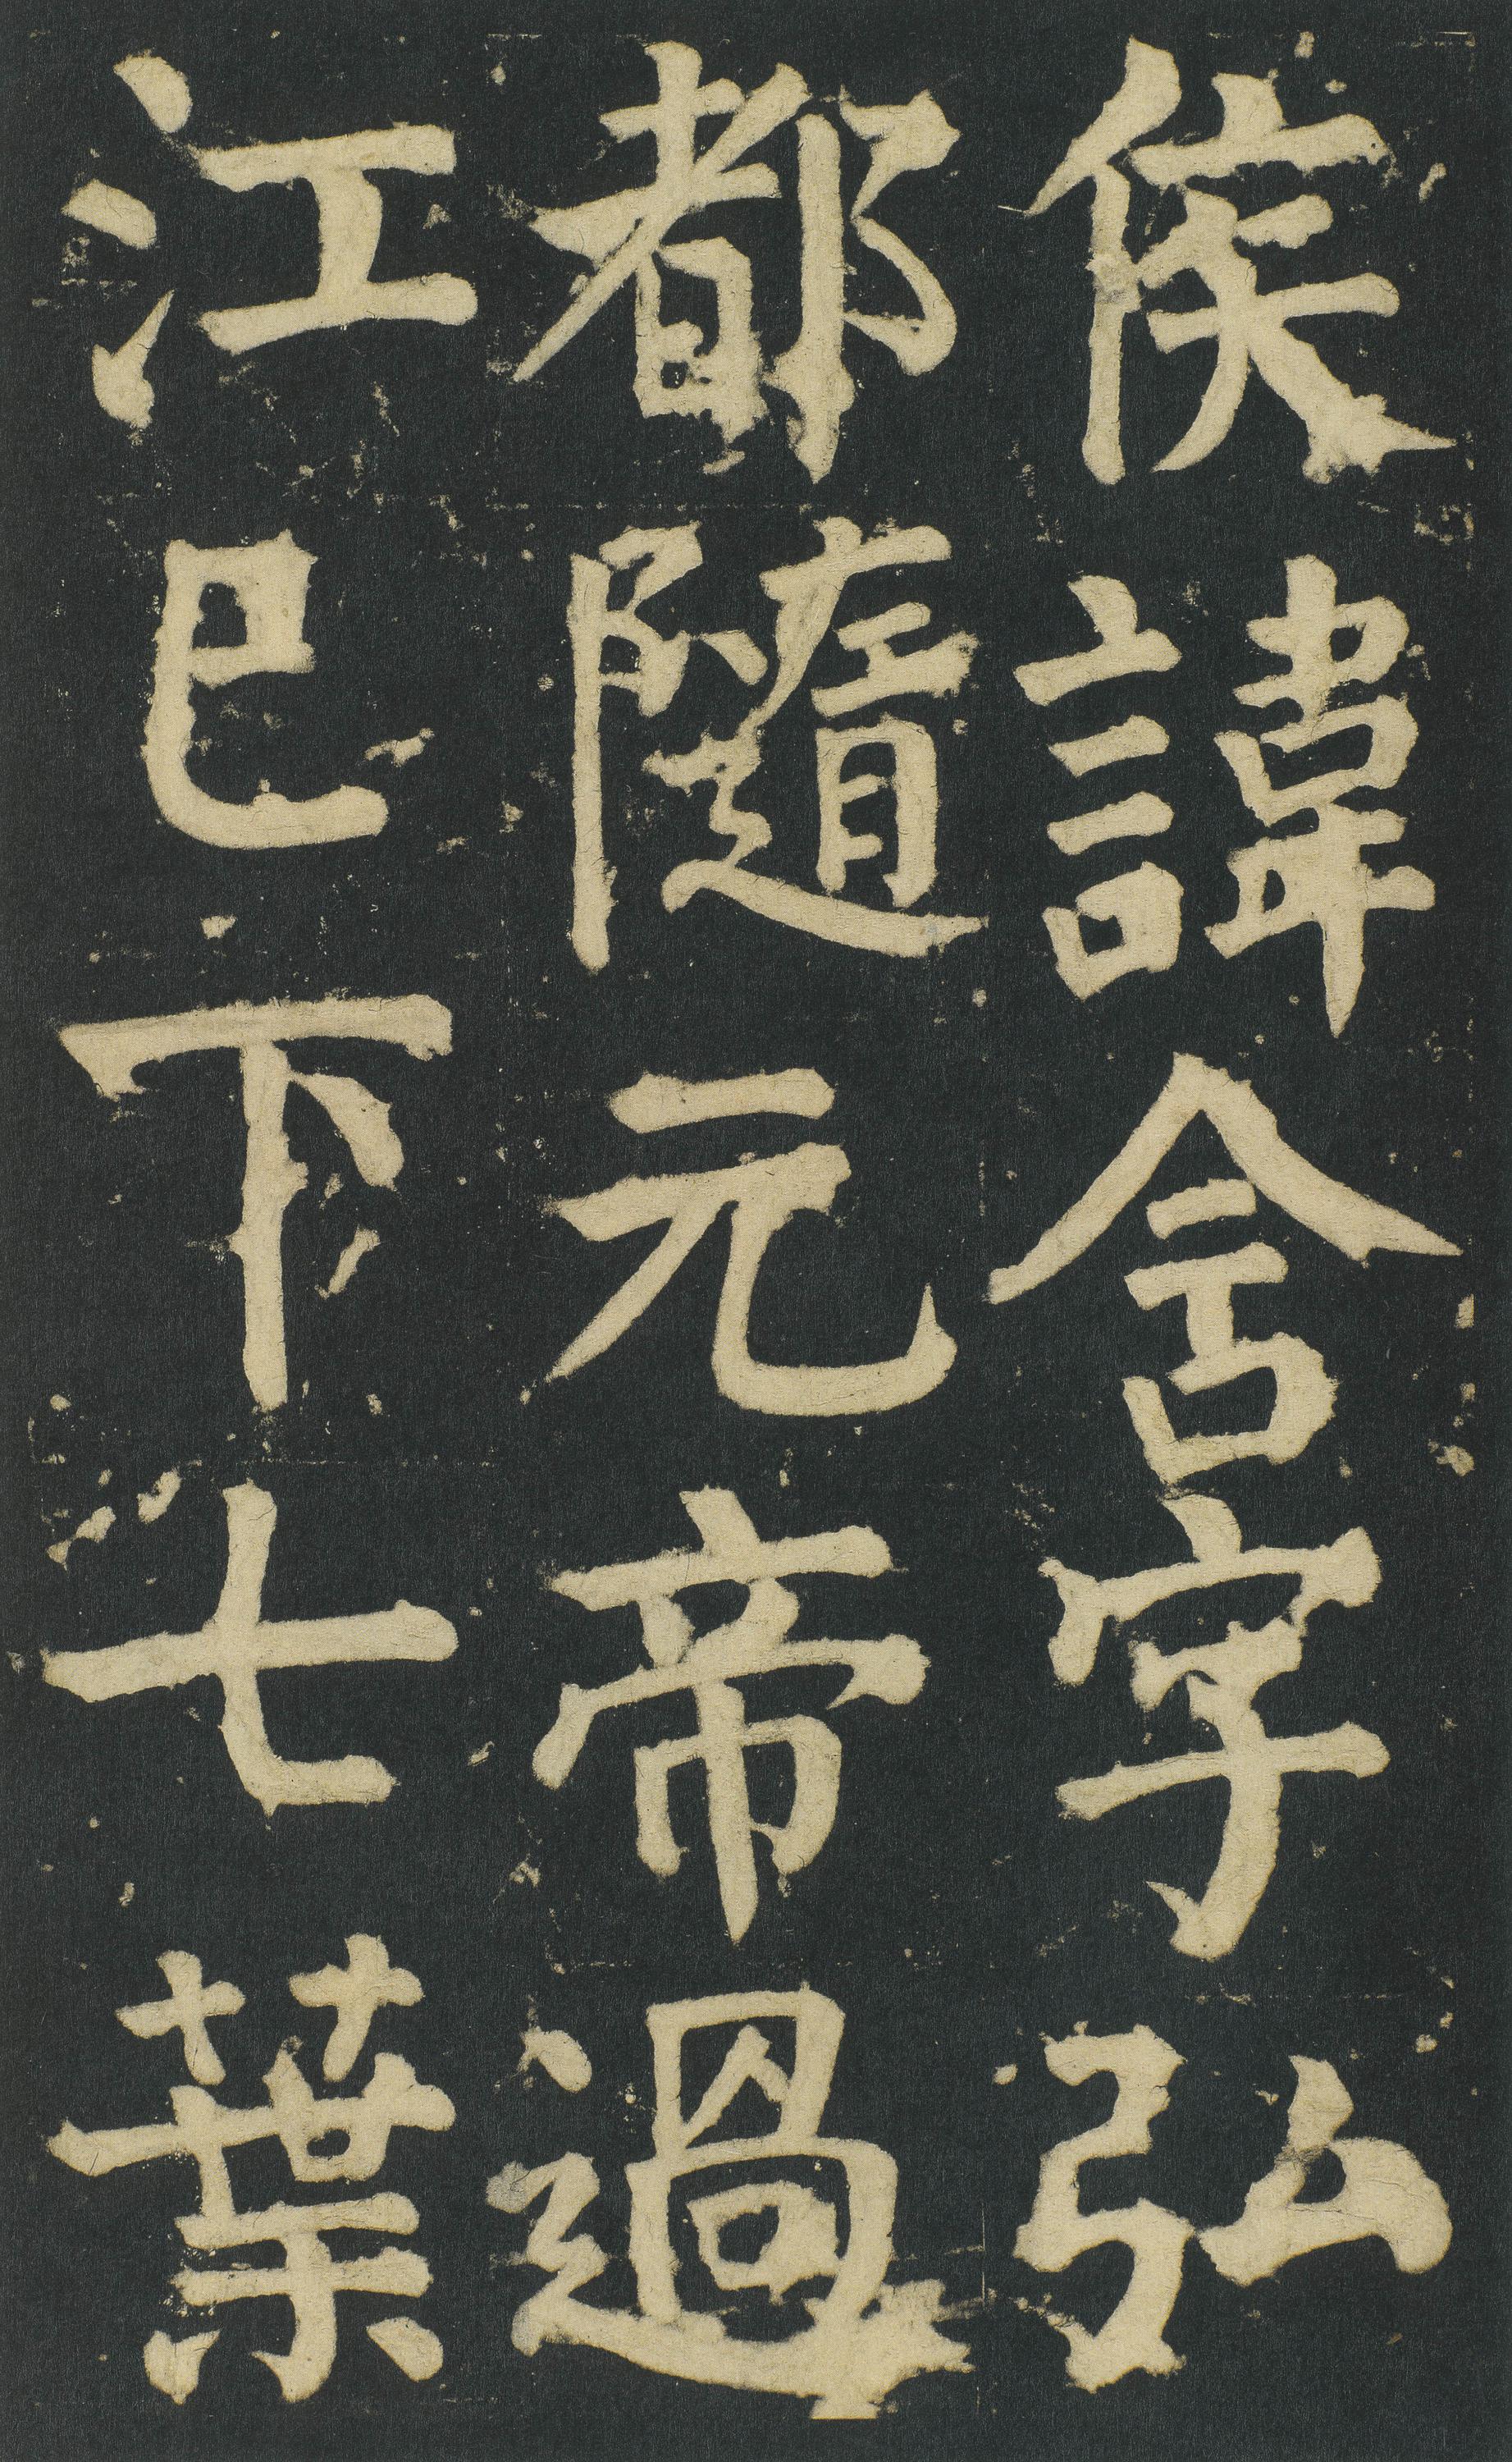 侯諱含字弘
都隨元帝過
江已下七葉